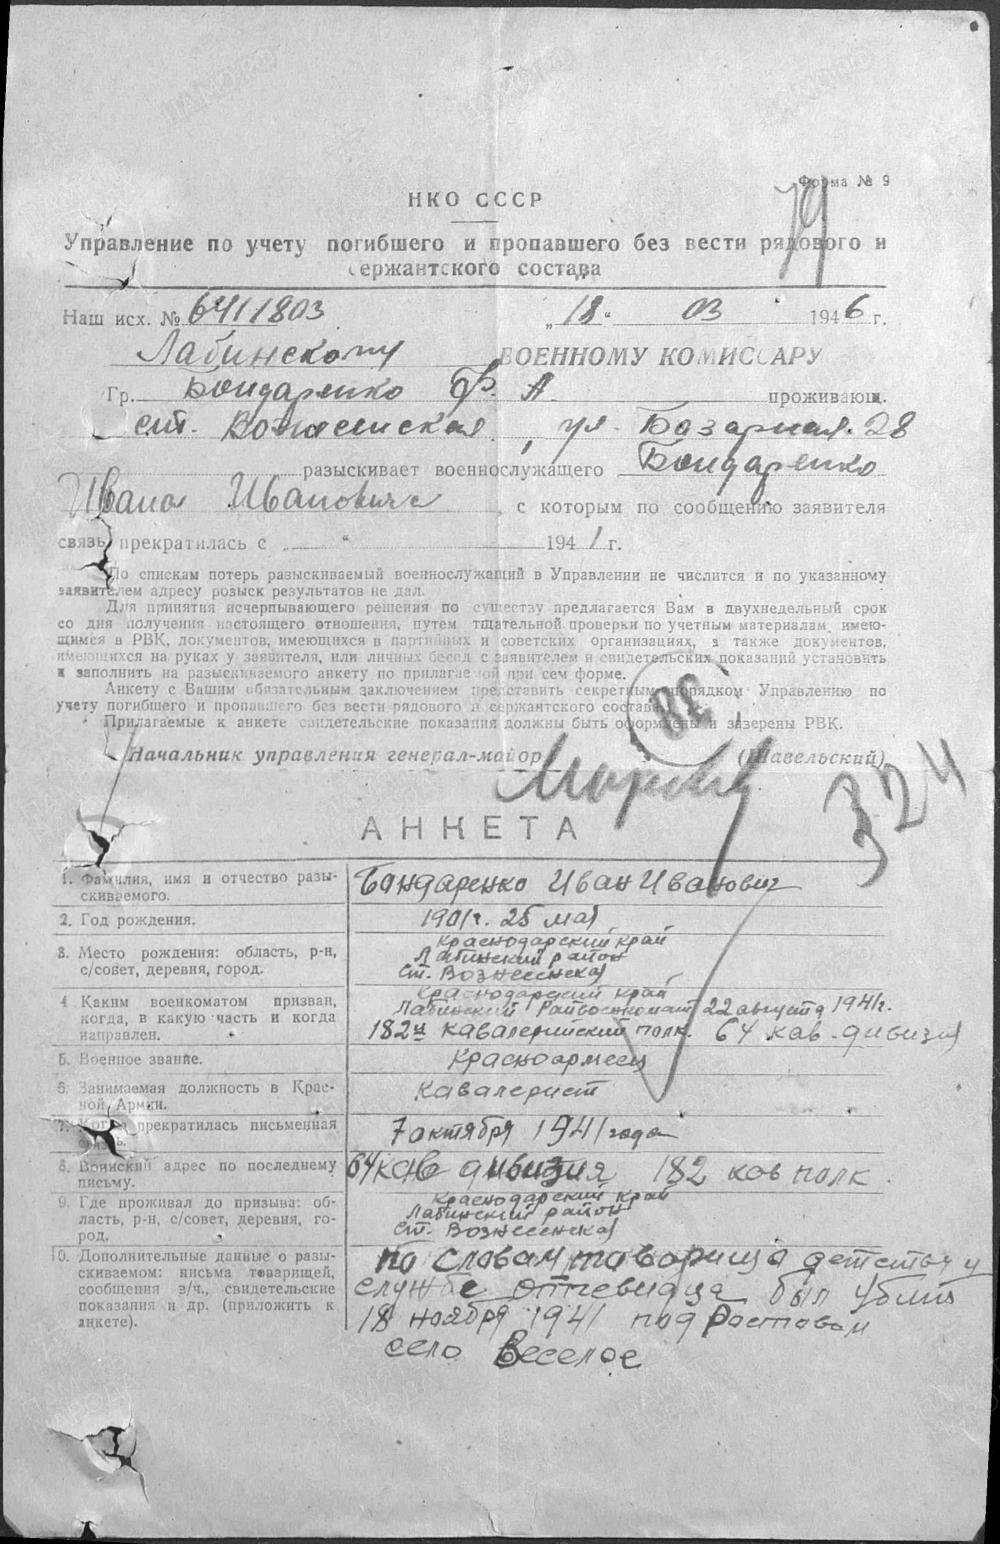 Форма № 9
79
НКО СССР
Управление по учету погибшего и пропавшего без вести рядового и
сержантского состава
Наш исх. № 6411803 „18“ 03 1946 г.
Лабинскому ВОЕННОМУ КОМИССАРУ
Гр. Бондаренко Ф. А проживающ.
ст. Вознесенская, ул. Базарная 28
разыскивает военнослужащего Бондаренко
Ивана Ивановича с которым по сообщению заявителя
связь прекратилась с „ “ 1941 г.
По спискам потерь разыскиваемый военнослужащий в Управлении не числится и по указанному
заявителем адресу розыск результатов не дал.
Для принятия исчерпывающего решения по существу предлагается Вам в двухнедельный срок
со дня получения настоящего отношения, путем тщательной проверки по учетным материалам, имею-
щимся в РВК, документов, имеющихся в партийных и советских организациях, а также документов,
имеющихся на руках у заявителя, или личных бесед с заявителем и свидетельских показаний установить
и заполнить на разыскиваемого анкету по прилагаемой при сем форме.
Анкету с Вашим обязательным заключением представить секретным порядком Управлению по
учету погибшего и пропавшего без вести рядового и сержантского состава.
Прилагаемые к анкете свидетельские показания должны быть оформлены и заверены РВК.
Начальник управления генерал-майор (Шавельский)
324
АНКЕТА
1. Фамилия, имя и отчество разы-
скиваемого.
Бондаренко Иван Иванович
2. Год рождения.
1901г. 25 мая
3. Место рождения: область, р-н,
с/совет, деревня, город.
Краснодарский край
Лабинский район
ст. Вознесенская
4 Каким военкоматом призван,
когда, в какую часть и когда
направлен.
Краснодарский край
Лабинский Райвоенкомат 22 августа 1941г.
182й кавалерийский полк. 64 кав. дивизия
5. Военное звание.
Красноармеец
6. Занимаемая должность в Крас-
ной Армии.
Кавалерист
7. Когда прекратилась письменная
связь.
7 октября 1941 года
8. Воинский адрес по последнему
письму.
64 кав дивизия 182 ков полк
9. Где проживал до призыва: об-
ласть, р-н, с/совет, деревня, го-
род.
Краснодарский край
Лабинский район
ст. Вознесенская
10. Дополнительные данные о разы-
скиваемом: письма товарищей,
сообщения в/ч., свидетельские
показания и др. (приложить к
анкете).
по словам товарища детству и
службе отчевидца был убит
18 ноября 1941 под Ростовом
село Веселое